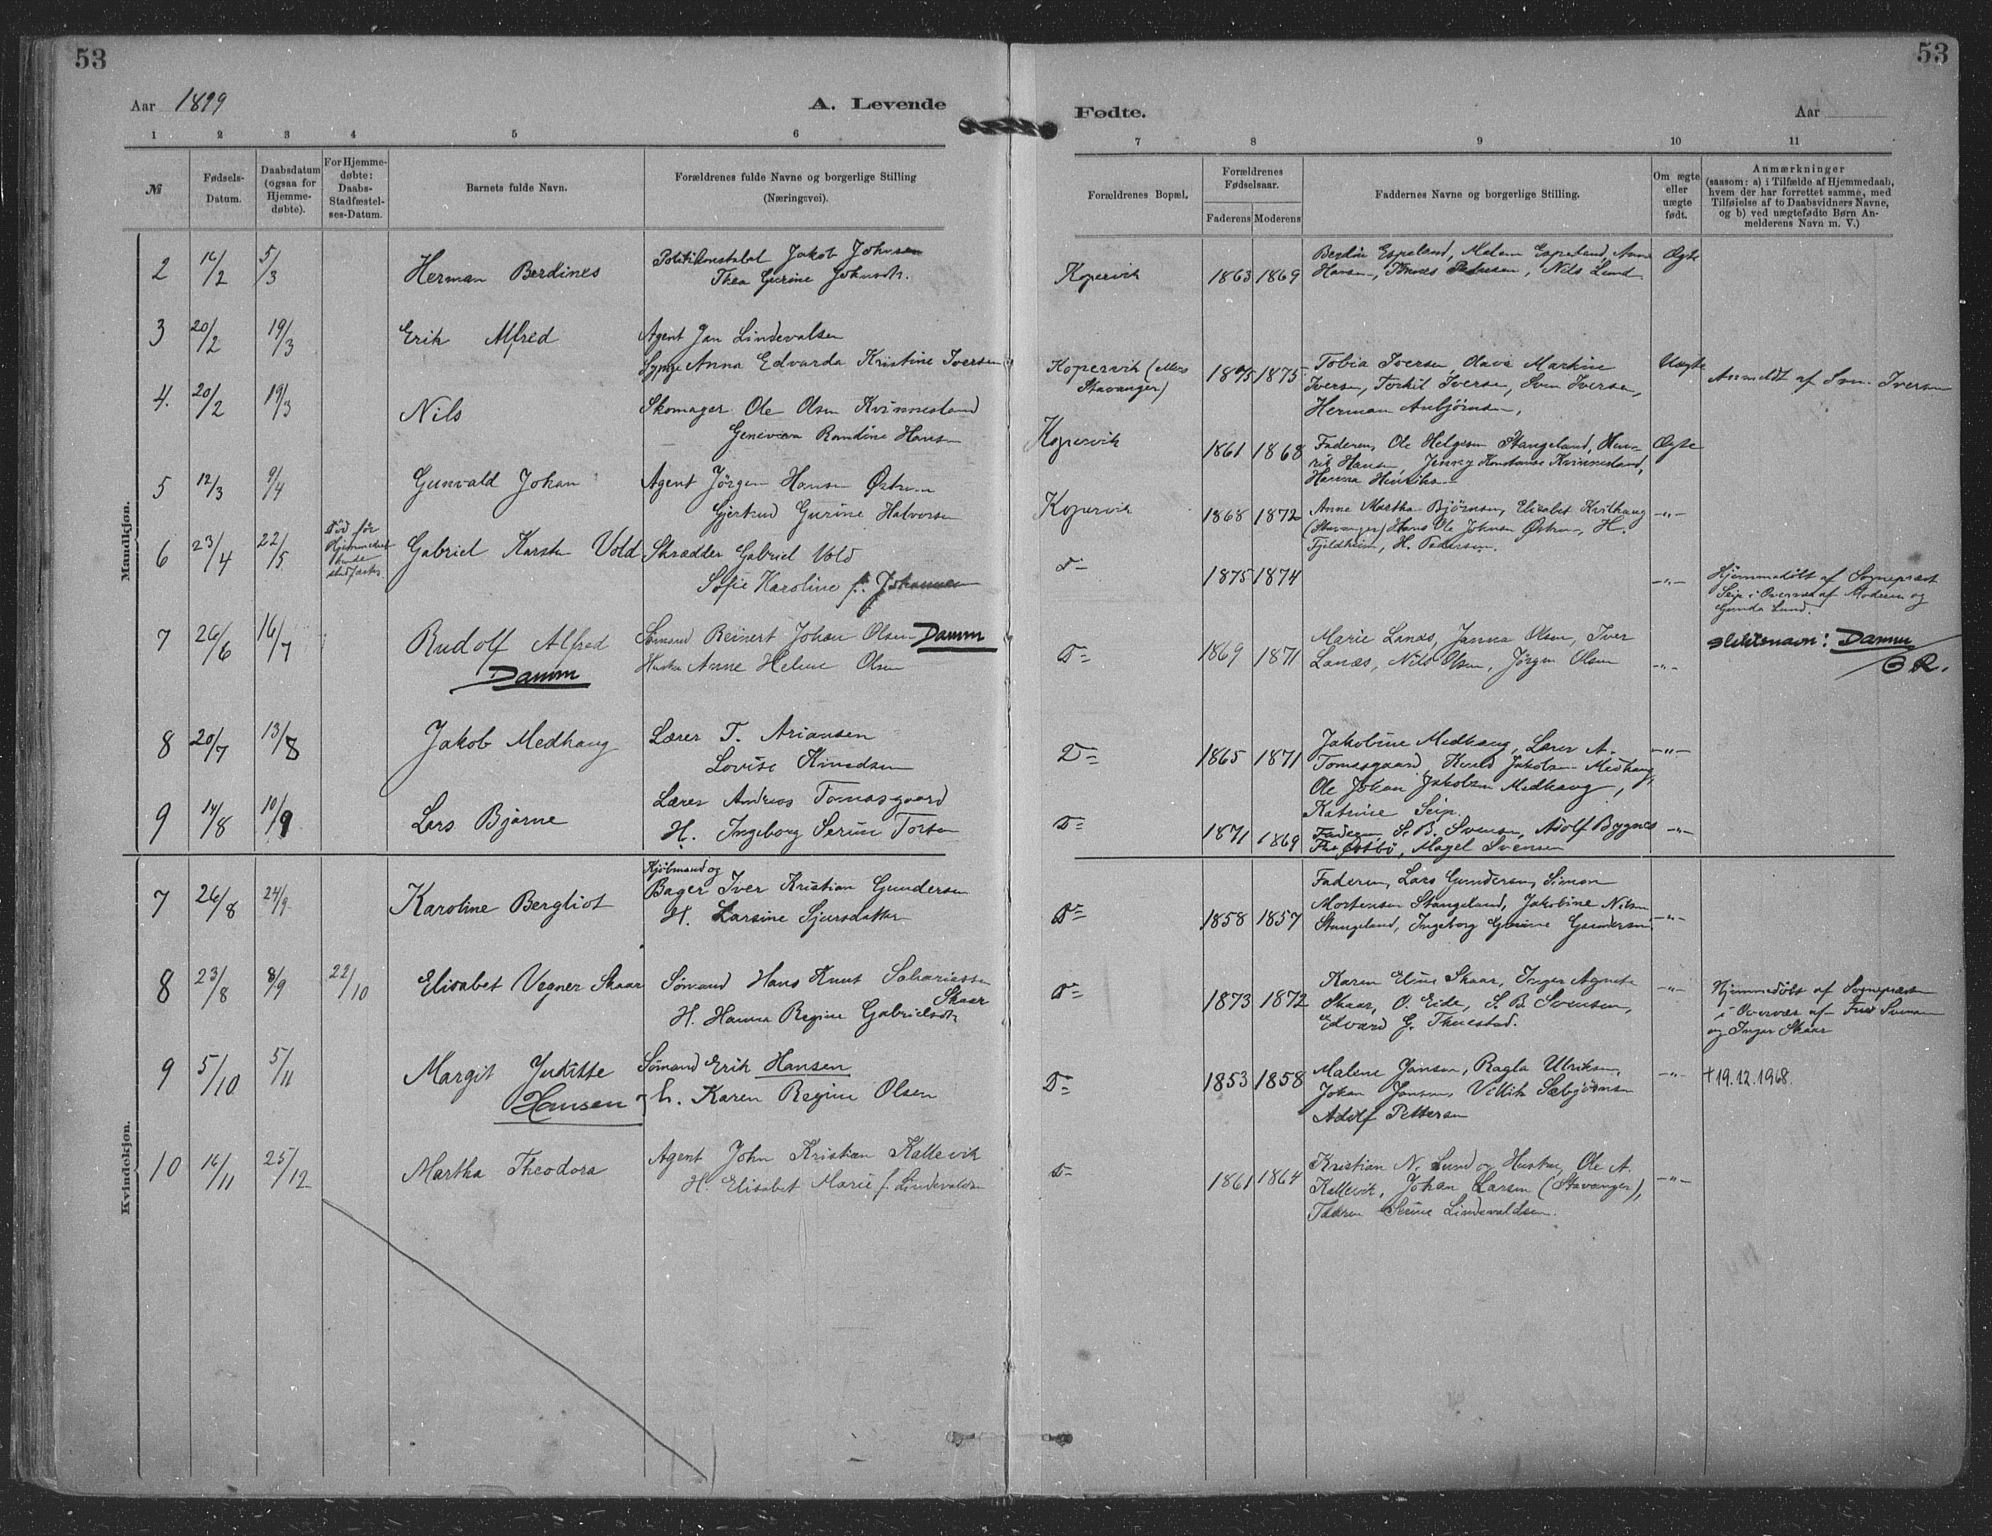 53
53
Aar 1899
A. Levende
Fødte.
Aar
1 2 3 4 5 6
7 8 9 10 11
№
Fødsels-
Datum.
Daabsdatum
(ogsaa for
Hjemme-
døbte).
For Hjemme-
døbte:
Daabs-
Stadfæstel-
ses-Datum.
Barnets fulde Navn.
Forældrenes fulde Navne og borgerlige Stilling
(Næringsvei).
Forældrenes Bopæl.
Forældrenes
Fødselsaar.
Faderens Moderens
Faddernes Navne og borgerlige Stilling.
Om ægte
eller
uægte
født.
Anmærkninger
(saasom: a) i Tilfælde af Hjemmedaab,
hvem der har forrettet samme, med
Tilføielse af to Daabsvidners Navne,
og b) ved uægtefødte Børn An-
melderens Navn m. V.)
Mandkjøn.
2 16/2 5/3 Herman Berdines
Politikonstabel Jakob Johnsen
Thea Gurine Johnsdtr.
Kopervik 1863 1869
Berdin Espeland, Malene Espeland, Anna
Hansen, Pedersen, Nils Lund
Ægte
3 20/2 19/3 Erik Alfred
Agent Jan Lindevalsen
Anna Edvarda Kristine Iversen
Kopervik (
Stavanger) 1875 1875
Tobia Iversen, Olava Martine
Iversen, Torkil Iversen, Sven Iversen,
Herman Anbjørnsen,
Uægte
Anmeldt af Iversen
4. 20/2 19/3 Nils
Skomager Ole Olsen Kvinnesland
Geneviva Randine Hansen
Kopervik 1861 1868
Faderen, Ole Helgesen Stangeland, Hen-
rik Hansen, Jenny Konstanse Kvinnesland,
Hanna Henriksen
Ægte
5 12/3 9/4 Gunvald Johan
Agent Jørgen Hansen
Gjertrud Gurine Halvorsen
Kopervik 1868 1872
Anne Martha Bjørnsen, Elisabet Kvilhaug
(Stavanger) Hans Ole Johnsen H.
Fjeldheim, H. Pedersen.
-"-
6 23/4 22/5
Død før
Gabriel Karsten Vold
Skrædder Gabriel Vold
Sofie Karoline f. Johannesen
Do 1875 1874
-"-
Hjemmedøbt af Sogneprest
Seip i Overvær af Moderen og
Gunda Lund.
7 26/6 16/7 Rudolf Alfred
Damm
Sømand Reinert Johan Olsen Damm
Hustru Anne Helene Olsen
Do 1869 1871
Marie Lanæs, Janna Olsen, Iver
Lanæs, Nils Olsen, Jørgen Olsen
-"-
Slektsnavn: Damm
8 20/7 13/8 Jakob Medhaug
Lærer T. Ariansen
Lovise Knudsen
Do 1865 1871
Jakobine Medhaug, Lærer A.
Tomasgaard, Knud Jakobsen Medhaug,
Ole Johan Jakobsen Medhaug,
-"-
9 14/8 10/9 Lars Bjarne
Lærer Andreas Tomasgaard
H. Ingeborg Serine
Do 1871 1869
Katrine Seip,
Faderen, S. B. Svensen, Adolf Bygnes
Svensen
-"-
Kvindekjøn.
7 26/8 24/9 Karoline Bergliot
Kjøbmand og
Bager Iver Kristian Gundersen
H. Larsine Sjursdatter
Do 1858 1857
Faderen, Lars Gundersen, Simon
Mortensen Stangeland, Jakobine Nilsen
Stangeland, Ingeborg Gurine Gundersen
-"-
8 23/8 8/9 22/10 Elisabet Vegner Skaar
Sømand Hans Knut Sakariassen
Skaar
H. Hanna Regine Gabrielsdtr
Do 1873 1872
Karen Skaar, Inger Agnete
Skaar, O. Eide, S. B. Svensen,
Edvard G. Thuestad.
-"-
Hjemmedøbt af Sognepræsten
i Overvær af Fru Svensen
og Inger Skaar
9 5/10 5/11 Margit Juditte
Hansen
Sømand Erik Hansen
h. Karen Regine Olsen
Do 1853 1858
Malene Jansen, Ragla Ulriksen,
Johan Jansen, Sæbjørnsen
Adolf Pettersen
-"-
† 19.12.1968.
10 16/11 25/12 Martha Theodora
Agent John Kristian Kallevik
H. Elisabet Marie f. Lindevaldsen
Do 1861 1864
Kristian N. Lund og Hustru, Ole A.
Kallevik, Johan Larsen (Stavanger),
Serine Lindevaldsen.
-"-